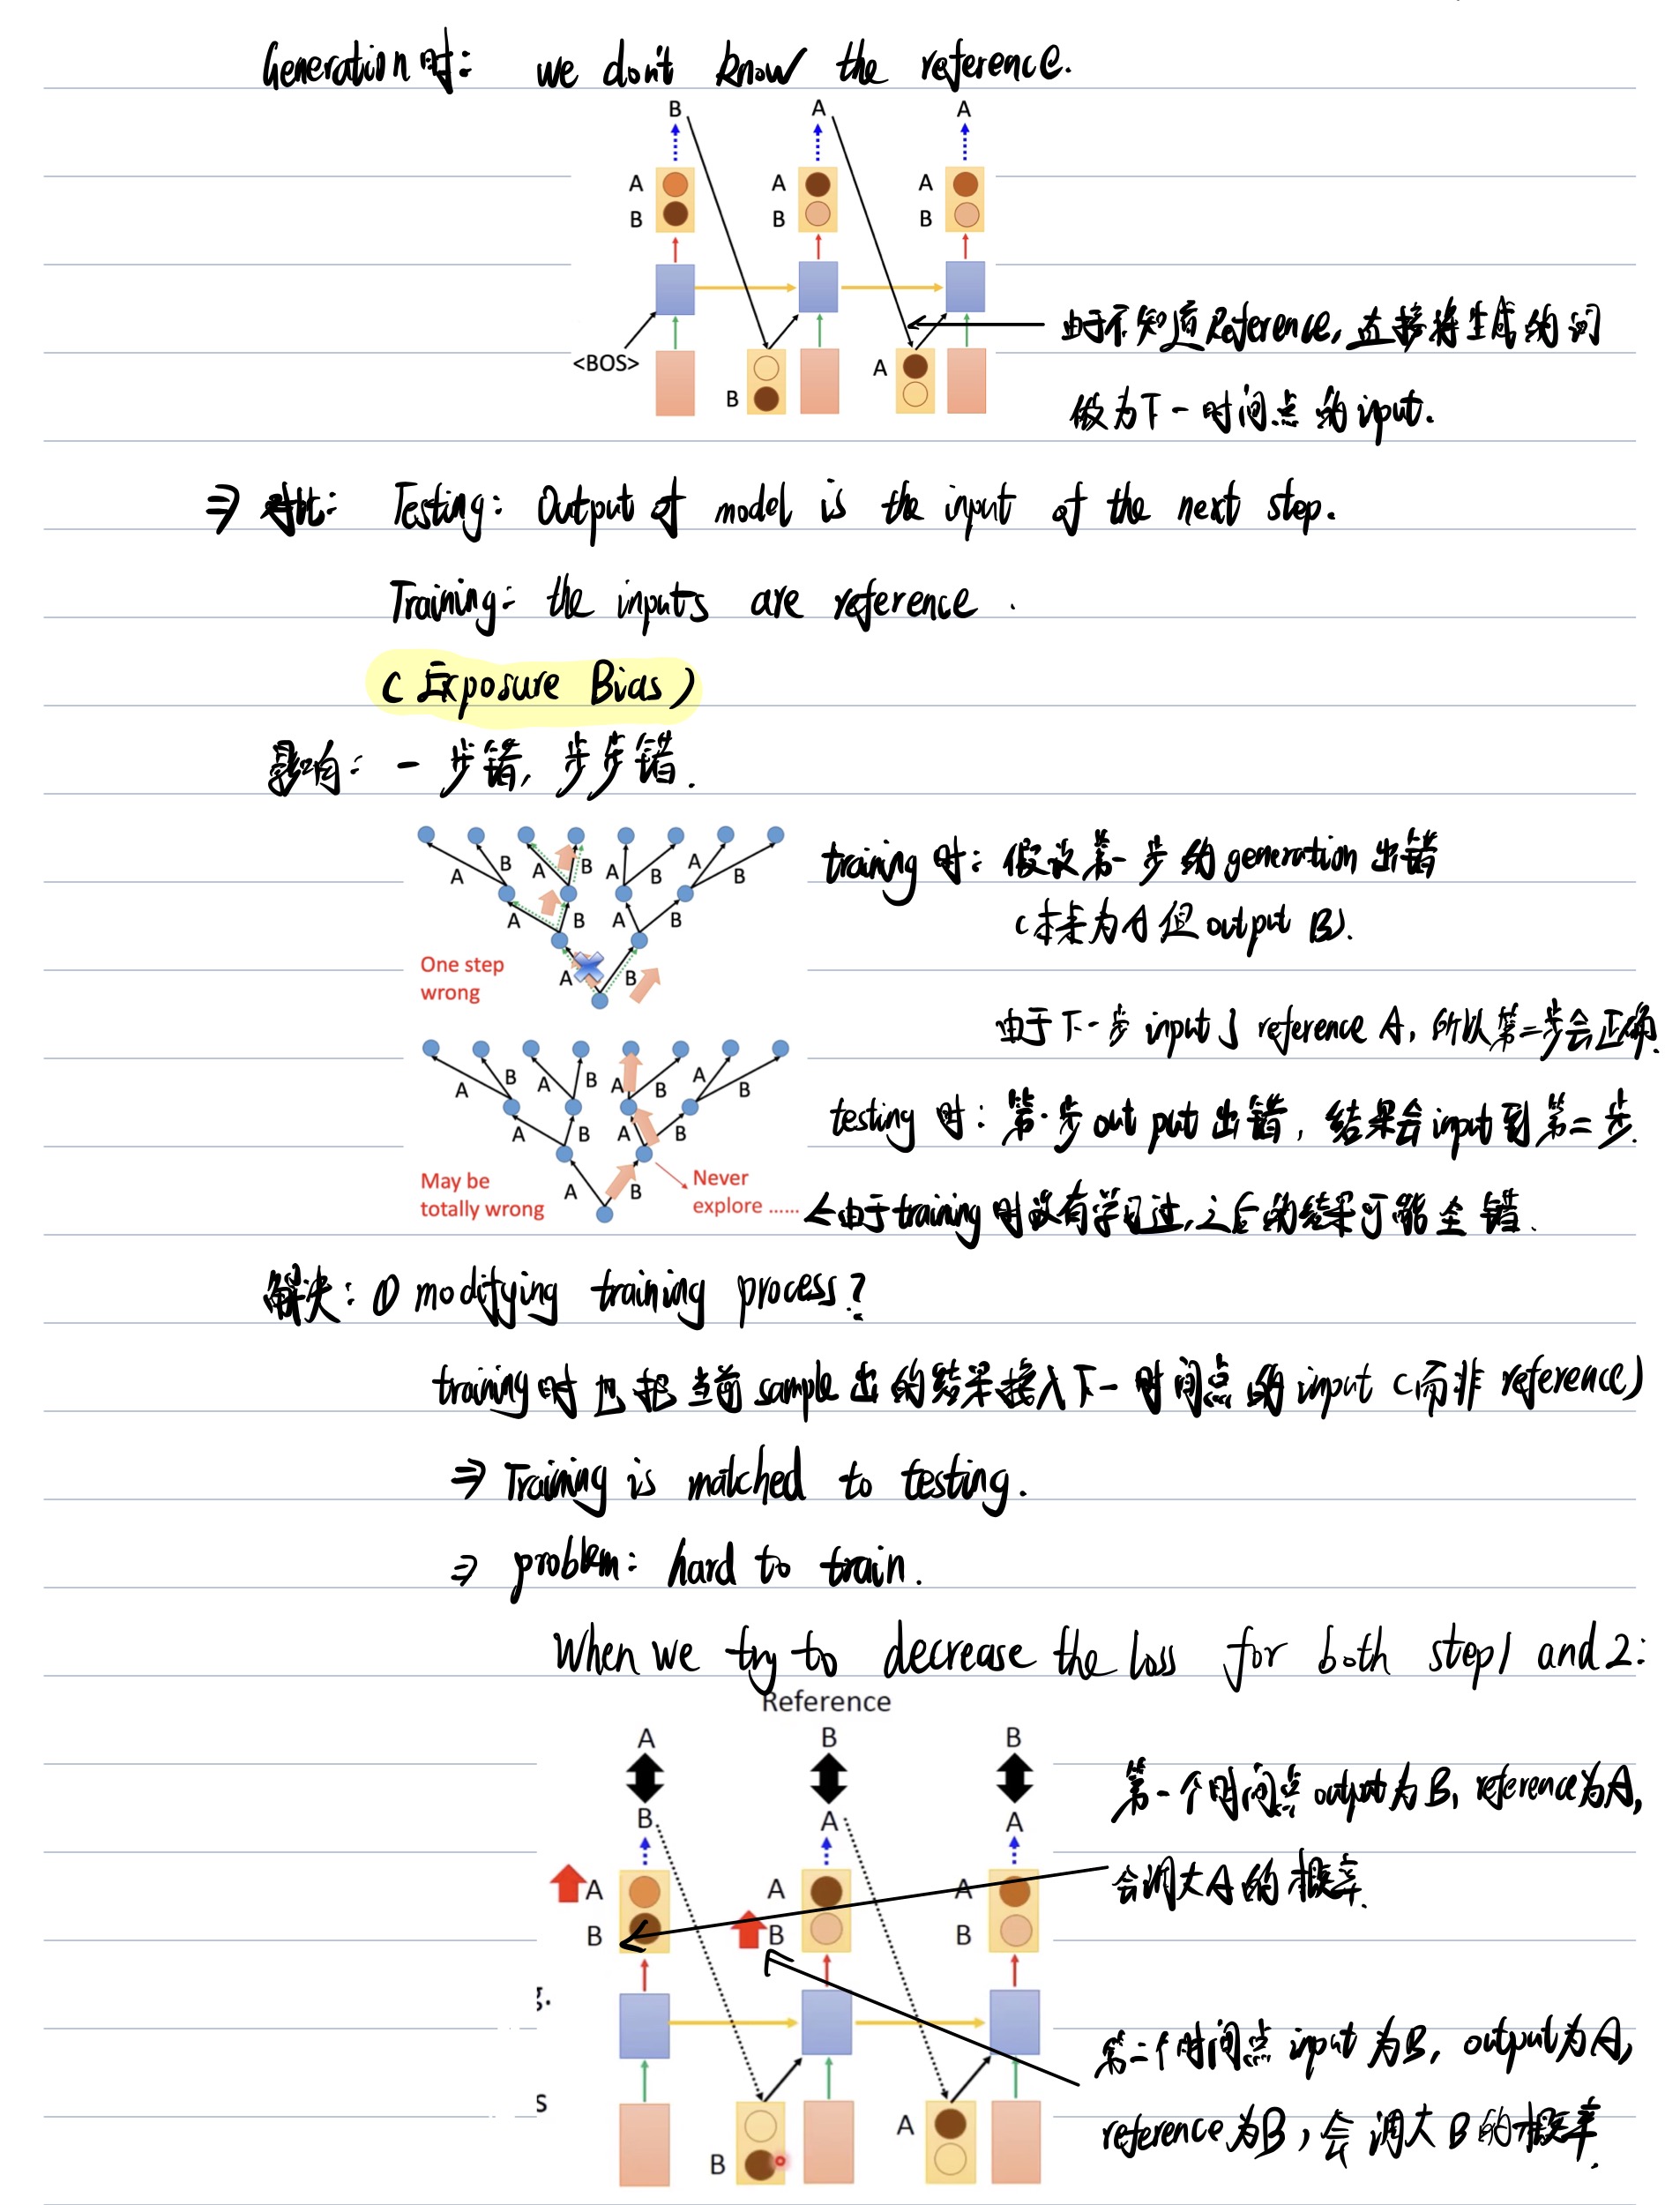 Generation时: we don't know the reference.
B A A
A A A
B B B
<BOS>
B
A
由于不知道Reference, 直接将生成的词
做为下一时间点的input.
⇒ 对比: Testing: Output of model is the input of the next step.
Training: the inputs are reference.
(Exposure Bias)
影响: 一步错, 步步错.
A B A B A B A B
A B A B
A B
One step
wrong
training时: 假设第一步的generation出错
(本来为A但output B).
由于下一步input了reference A, 所以第二步会正确.
A B A B A B A B
A B A B
A B
May be
totally wrong
Never
explore ......
testing时: 第一步output出错, 结果会input到第二步.
←由于training时没有学习过, 之后的结果可能全错.
解决: ① modifying training process?
training时也把当前sample出的结果接入下一时间点的input (而非reference)
⇒ Training is matched to testing.
⇒ problem: hard to train.
When we try to decrease the loss for both step1 and 2:
Reference
A B B
B A A
A A A
B B B
B
A
g.
s
第一个时间点output为B, reference为A,
会调大A的概率.
第二个时间点input为B, output为A,
reference为B, 会调大B的概率.